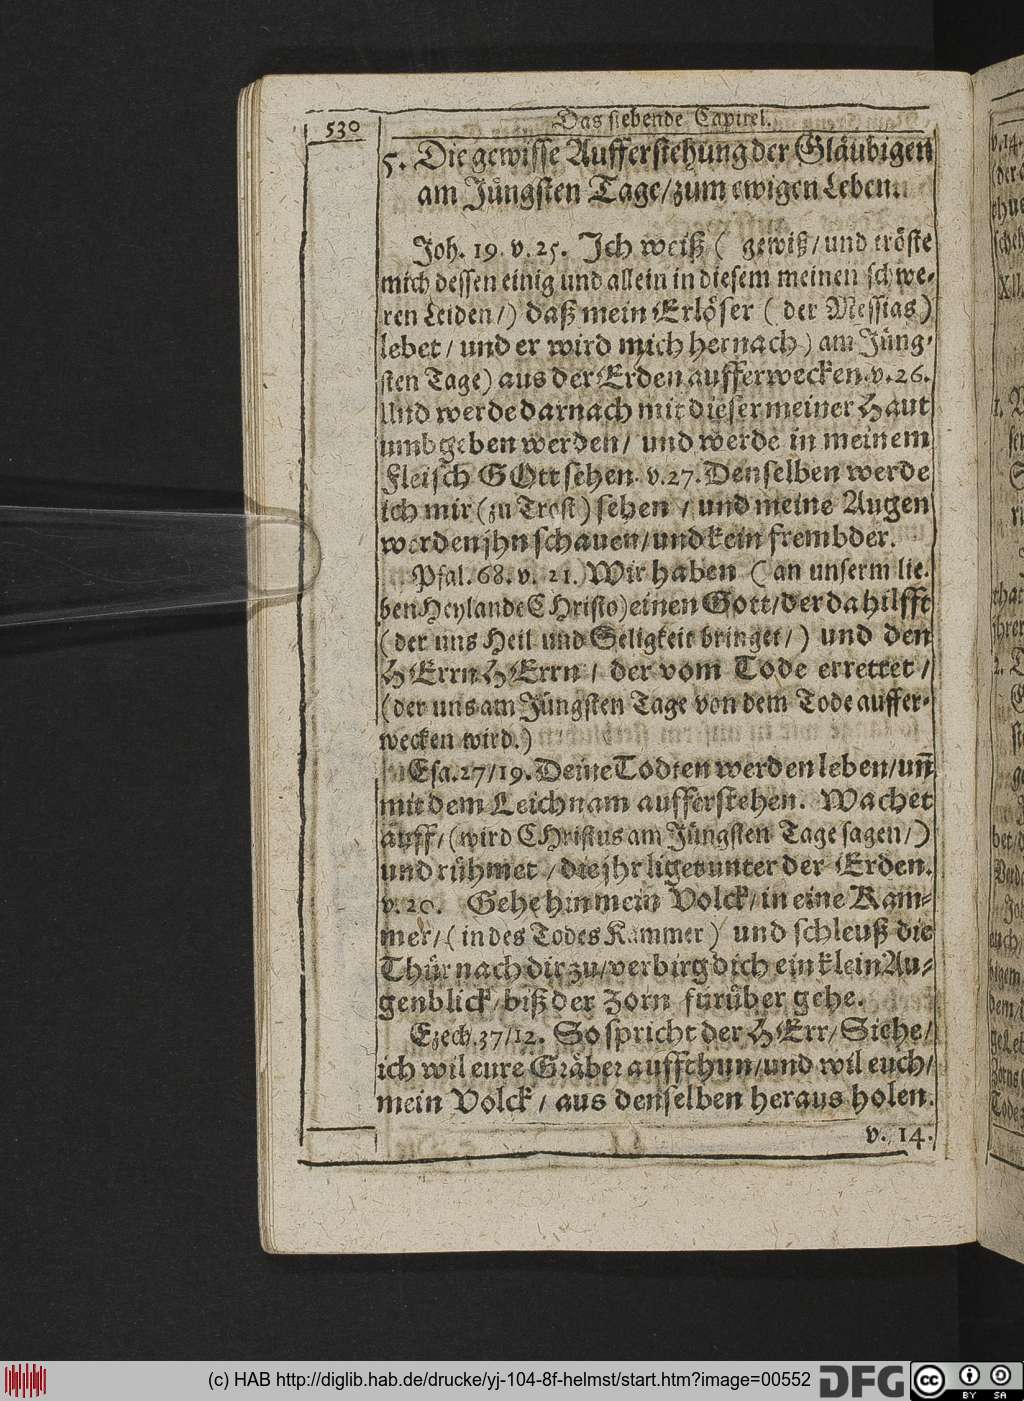 530
Das siebende Capitel.
5. Die gewisse Aufferstehung der Gläubigen
am Jüngsten Tage/zum ewigen Leben.
Joh. 19. v. 25. Ich weiß ( gewiß/und tröste
mich dessen einig und allein in diesem meinen schwe-
ren Leiden/) daß mein Erlöser ( der Messias)
lebet / und er wird mich hernach ) am Jüng-
sten Tage) aus der Erden aufferwecken. v. 26.
Und werde darnach mit dieser meiner Haut
umbgeben werden/ und werde in meinem
Fleisch GOtt sehen. v. 27. Denselben werde
ich mir (zu Trost) sehen / und meine Augen
werden jhn schauen/und kein frembder.
Psal. 68. v. 21. Wir haben ( an unserm lie-
ben Heylande CHristo) einen Gott/der da hilfft
(der uns Heil und Seligkeit bringet/) und den
HErrn HErrn / der vom Tode errettet /
(der uns am Jüngsten Tage von dem Tode auffer-
wecken wird.)
Esa. 27/19. Deine Todten werden leben/uñ
mit dem Leichnam aufferstehen. Wachet
auff/(wird CHristus am Jüngsten Tage sagen/)
und rühmet / die jhr liget unter der Erden.
v. 20. Gehe hin mein Volck/in eine Kam-
mer/( in des Todes Kammer ) und schleuß die
Thür nach dir zu/verbirg dich ein klein Au-
genblick/biß der Zorn fürüber gehe.
Ezech. 37/12. So spricht der HErr/Siehe/
ich wil eure Gräber auffthun/und wil euch/
mein Volck / aus denselben heraus holen.
v. 14.
(c) HAB http://diglib.hab.de/drucke/yj-104-8f-helmst/start.htm?image=00552
DFG
cc
BY SA